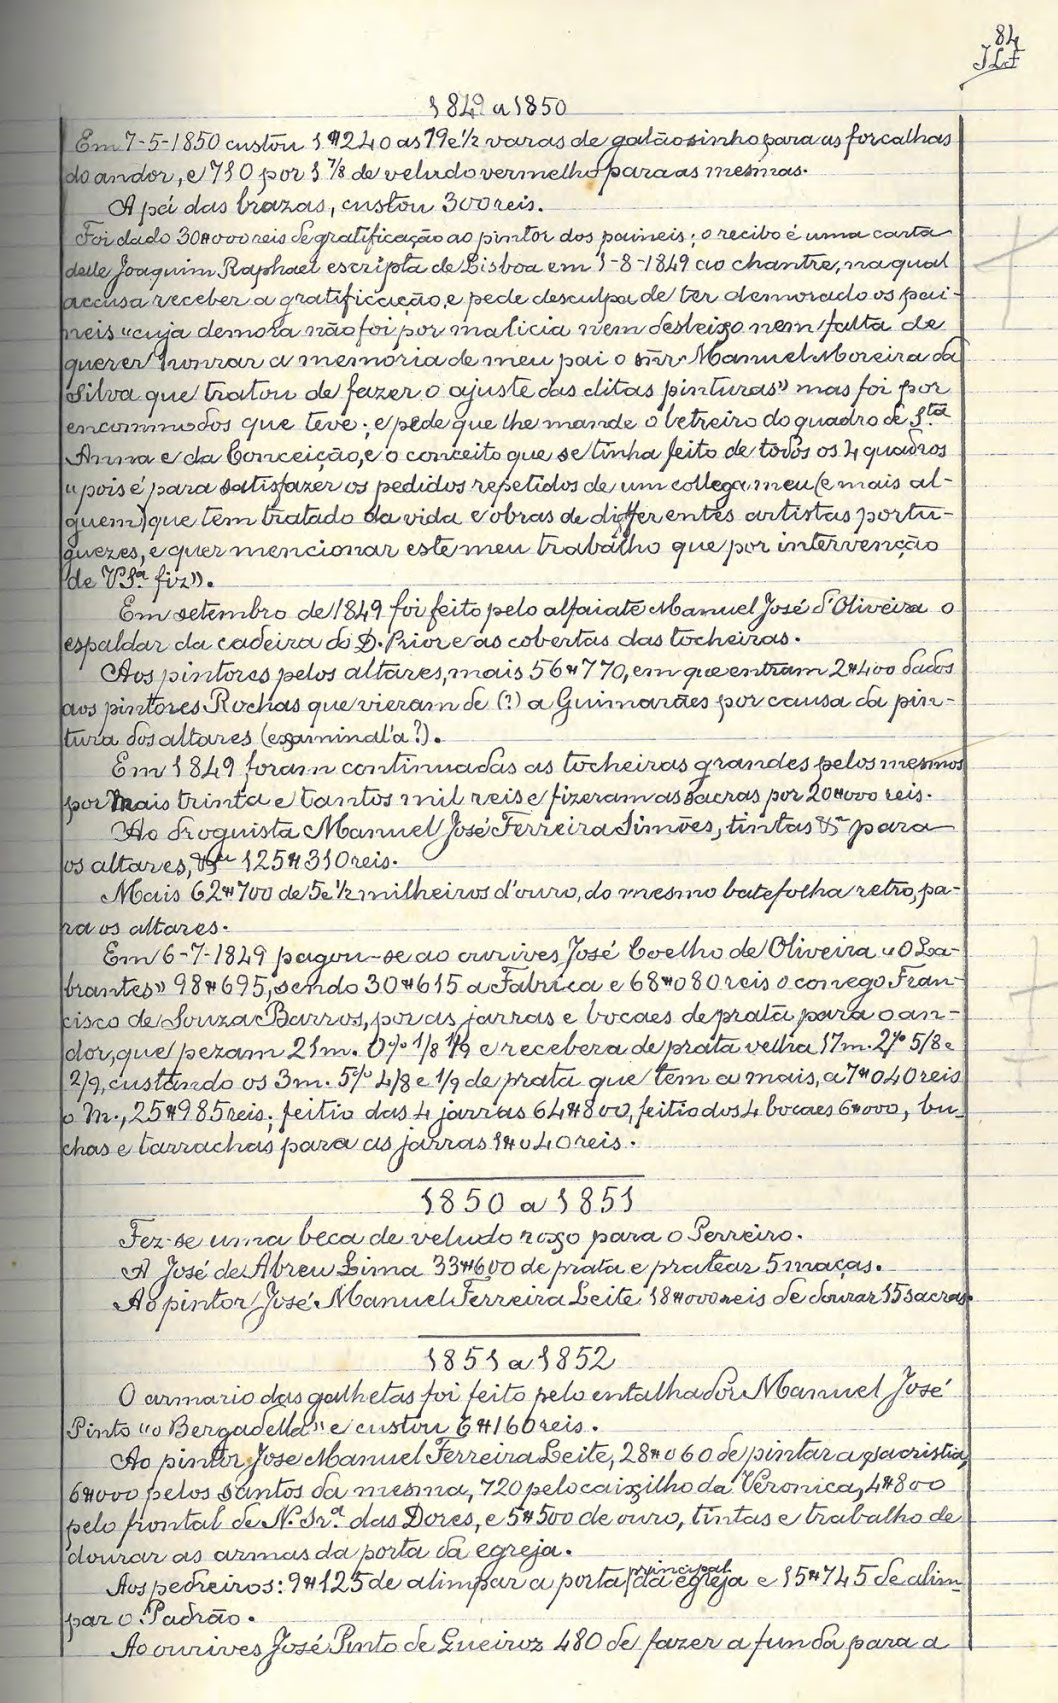 84
JLF
1849 a 1850
Em 7-5-1850 custou 1$240 as 19 e ½ varas de galãosinho para as forcalhas
do andor, e 710 por 1 7/8 de veludo vermelho para as mesmas.
A pá das brazas, custou 300 reis.
Foi dado 30$000 reis de gratificação ao pintor dos paineis; o recibo é uma carta
delle Joaquim Raphael escripta de Lisboa em 1-8-1849 ao chantre, na qual
accusa receber a gratificação, e pede desculpa de ter demorado os pai-
neis "cuja demora não foi por malicia nem desleixo nem falta de
querer honrar a memoria de meu pai o snr. Manuel Moreira da
Silva que tratou de fazer o ajuste das ditas pinturas" mas foi por
encommodos que teve; e pede que lhe mande o letreiro do quadro de Sta
Anna e da Conceição, e o conceito que se tinha feito de todos os 4 quadros
"pois é para satisfazer os pedidos repetidos de um collega meu (e mais al-
guem) que tem tratado da vida e obras de differentes artistas portu-
guezes, e quer mencionar este meu trabalho que por intervenção
de V.Sª. fiz".
Em setembro de 1849 foi feito pelo alfaiate Manuel José d'Oliveira o
espaldar da cadeira do D. Prior e as cobertas das tocheiras.
Aos pintores pelos altares, mais 56$770, em que entram 2$400 dados
aos pintores Rochas que vieram de (?) a Guimarães por causa da pin-
tura dos altares (examinal'a?).
Em 1849 foram continuadas as tocheiras grandes pelos mesmos
por mais trinta e tantos mil reis e fizeram as sacras por 20$000 reis.
Ao droguista Manuel José Ferreira Simões, tintas &ª para
os altares, &ª 125$310 reis.
Mais 62$700 de 5 e ½ milheiros d'ouro, do mesmo batefolha retro, pa-
ra os altares.
Em 6-7-1849 pagou-se ao ourives José Coelho de Oliveira "O La-
brantes" 98$695, sendo 30$615 a Fabrica e 68$080 reis o conego Fran-
cisco de Souza Barros, por as jarras e bocaes de prata para o an-
dor, que pezam 21m. 1/8 1/9 e recebera de prata velha 17m. 5/8 e
2/9, custando os 3m. 4/8 e 1/9 de prata que tem a mais, a 7$040 reis
o m., 25$985 reis; feitio das 4 jarras 64$800, feitio dos 4 bocaes 6$000, bu-
chas e tarrachas para as jarras 1$040 reis.
1850 a 1851
Fez-se uma beca de veludo roxo para o Perreiro.
A José de Abreu Lima 33$600 de prata e pratear 5 maças.
Ao pintor José Manuel Ferreira Leite 18$000 reis de dourar 15 sacras.
1851 a 1852
O armario das galhetas foi feito pelo entalhador Manuel José
Pinto "o Bergadella" e custou 6$160 reis.
Ao pintor Jose Manuel Ferreira Leite, 28$060 de pintar a sacristia,
6$000 pelos santos da mesma, 720 pelo caixilho da Veronica, 4$800
pelo frontal de N. Srª. das Dores, e 5$500 de ouro, tintas e trabalho de
dourar as armas da porta da egreja.
Aos pedreiros: 9$125 de alimpar a porta principal da egreja e 15$745 de alim-
par o Padrão.
Ao ourives José Pinto de Queiroz 480 de fazer a funda para a